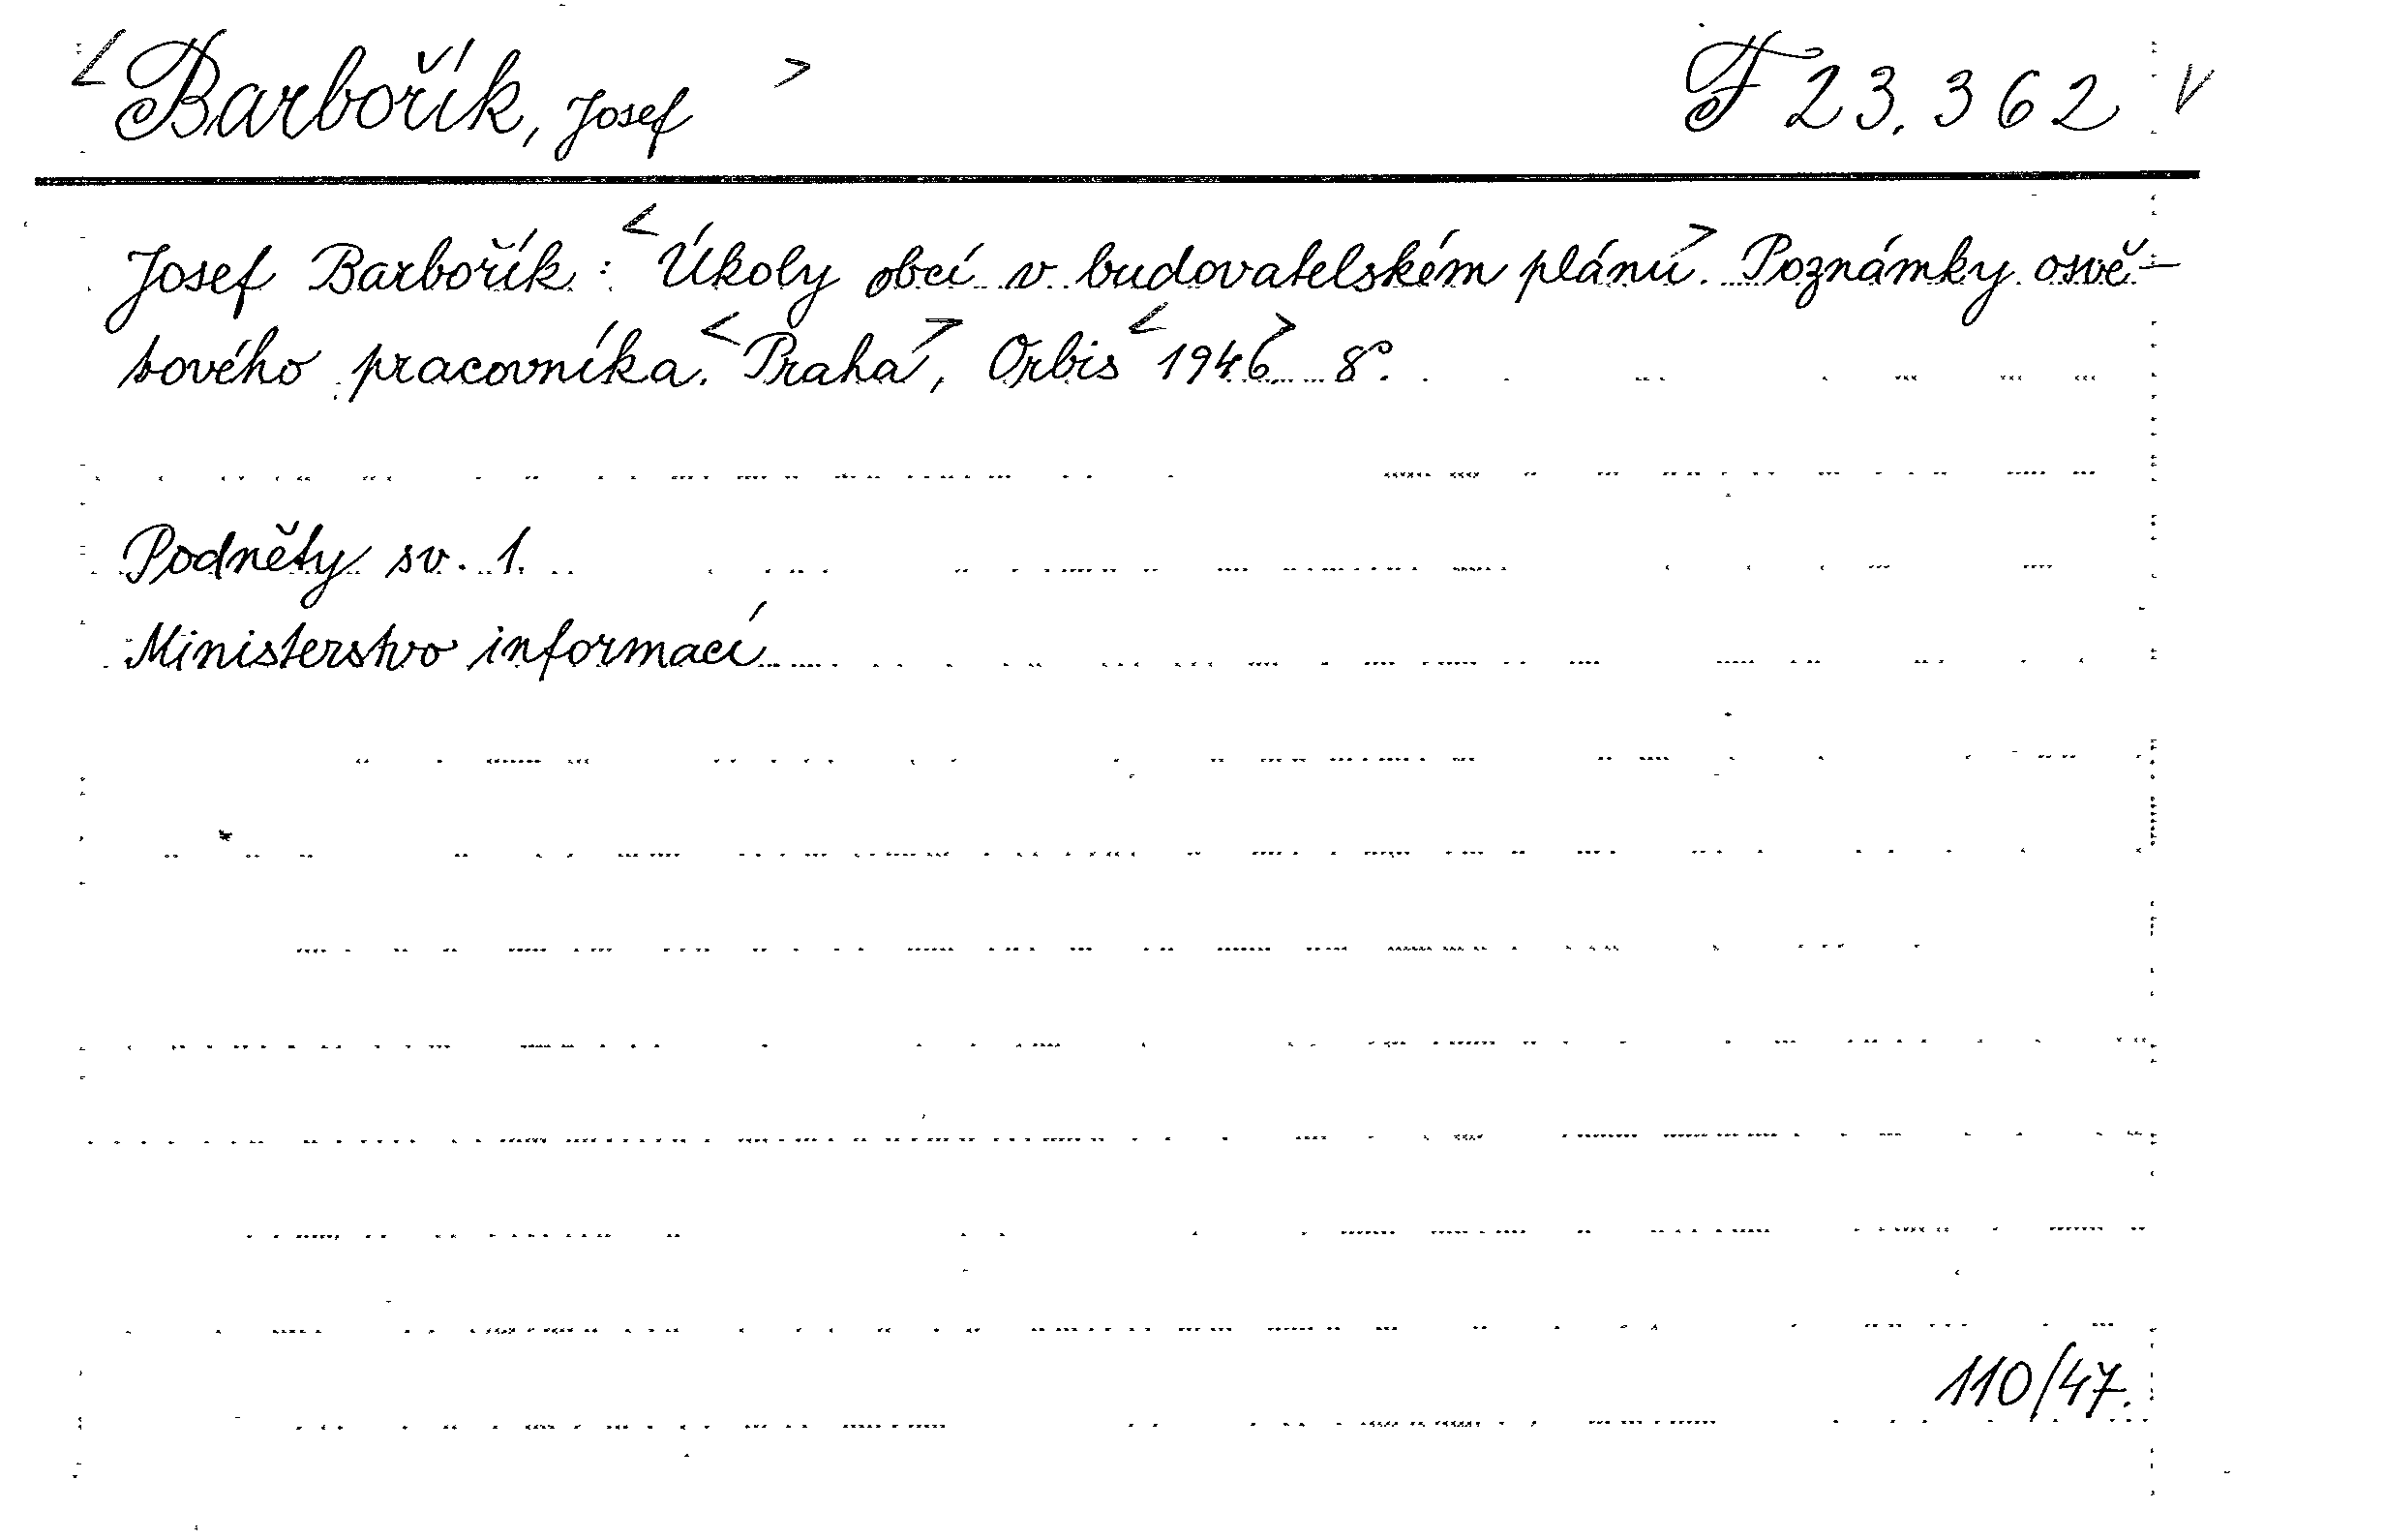 <Barbořík, Josef> F 23.362 V
Josef Barbořík: <Úkoly obcí v budovatelském plánu>. Poznámky osvě-
tového pracovníka. <Praha>, Orbis <1946> 8°.
Podněty sv. 1.
Ministerstvo informací
110/47.